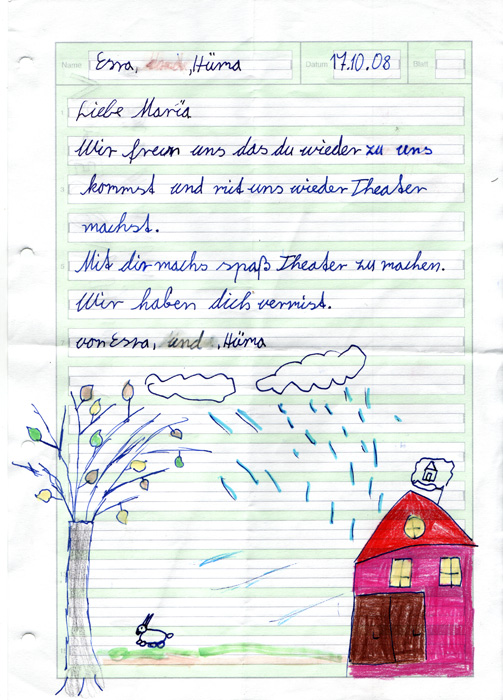 Name Esra, , Hüma Datum 17.10.08 Blatt
Liebe Maria
Wir freun uns das du wieder zu uns
kommst und mit uns wieder Theater
machst.
Mit dir machs spaß Theater zu machen.
Wir haben dich vermist.
von Esra, und , Hüma